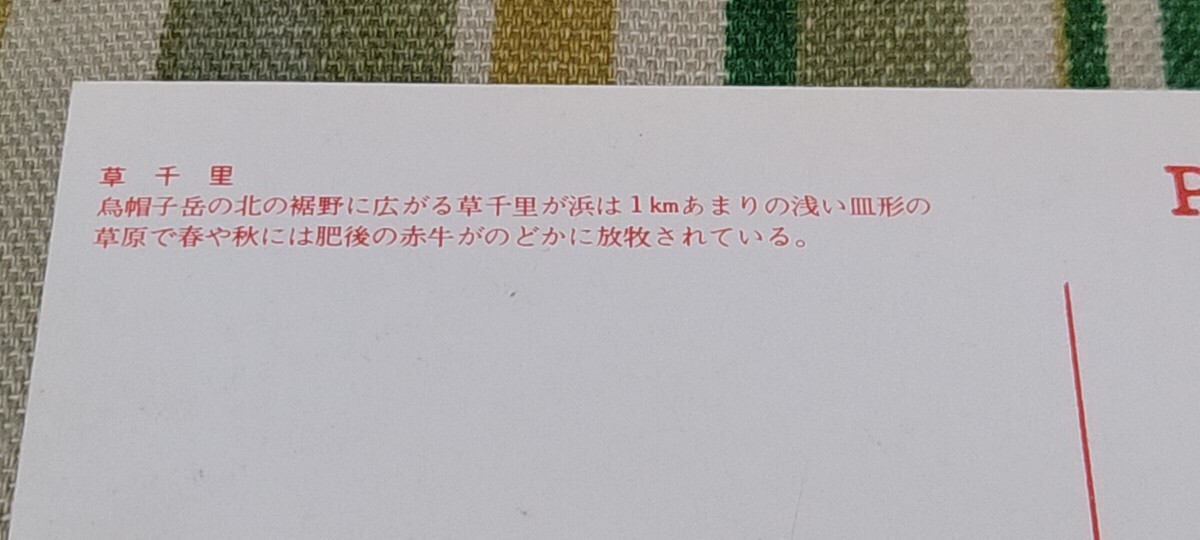 草千里
烏帽子岳の北の裾野に広がる草千里が浜は1kmあまりの浅い皿形の
草原で春や秋には肥後の赤牛がのどかに放牧されている。
P